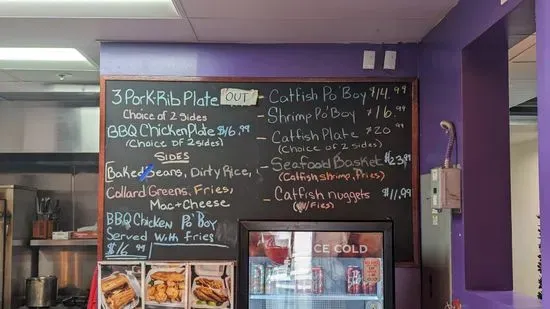 3 Pork Rib Plate OUT
Choice of 2 sides
BBQ Chicken Plate $16.99
(Choice of 2 sides)
SIDES
Baked Beans, Dirty Rice,
Collard Greens, Fries,
Mac + Cheese
BBQ Chicken Po'Boy
Served with fries
$16.99
- Catfish Po'Boy $14.99
- Shrimp Po'Boy $16.99
- Catfish Plate $20.99
(Choice of 2 sides)
- Seafood Basket $23.99
(Catfish, shrimp, Fries)
- Catfish nuggets $11.99
(w/Fries)
ICE COLD